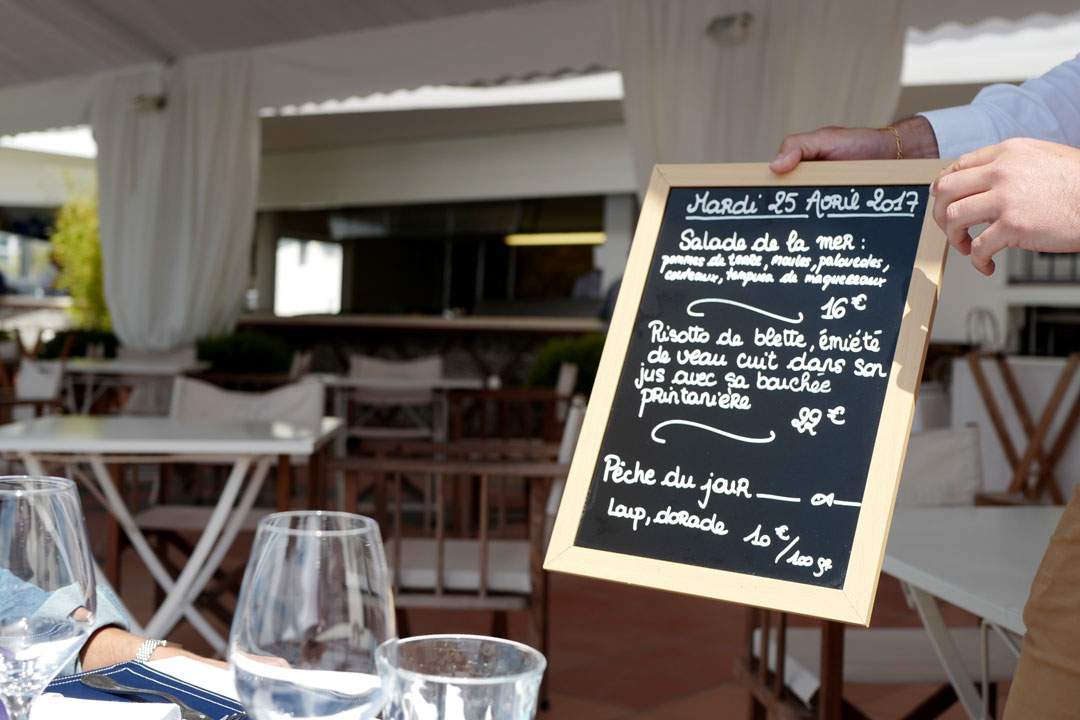 Mardi 25 Avril 2017
Salade de la mer :
pommes de terre, moules, palourdes,
couteaux, tampura de maquereaux
16€
Risotto de blette, émiété
de veau cuit dans son
jus avec sa bouchée
printanière
22€
Pêche du jour
Loup, dorade 10€/100 gr